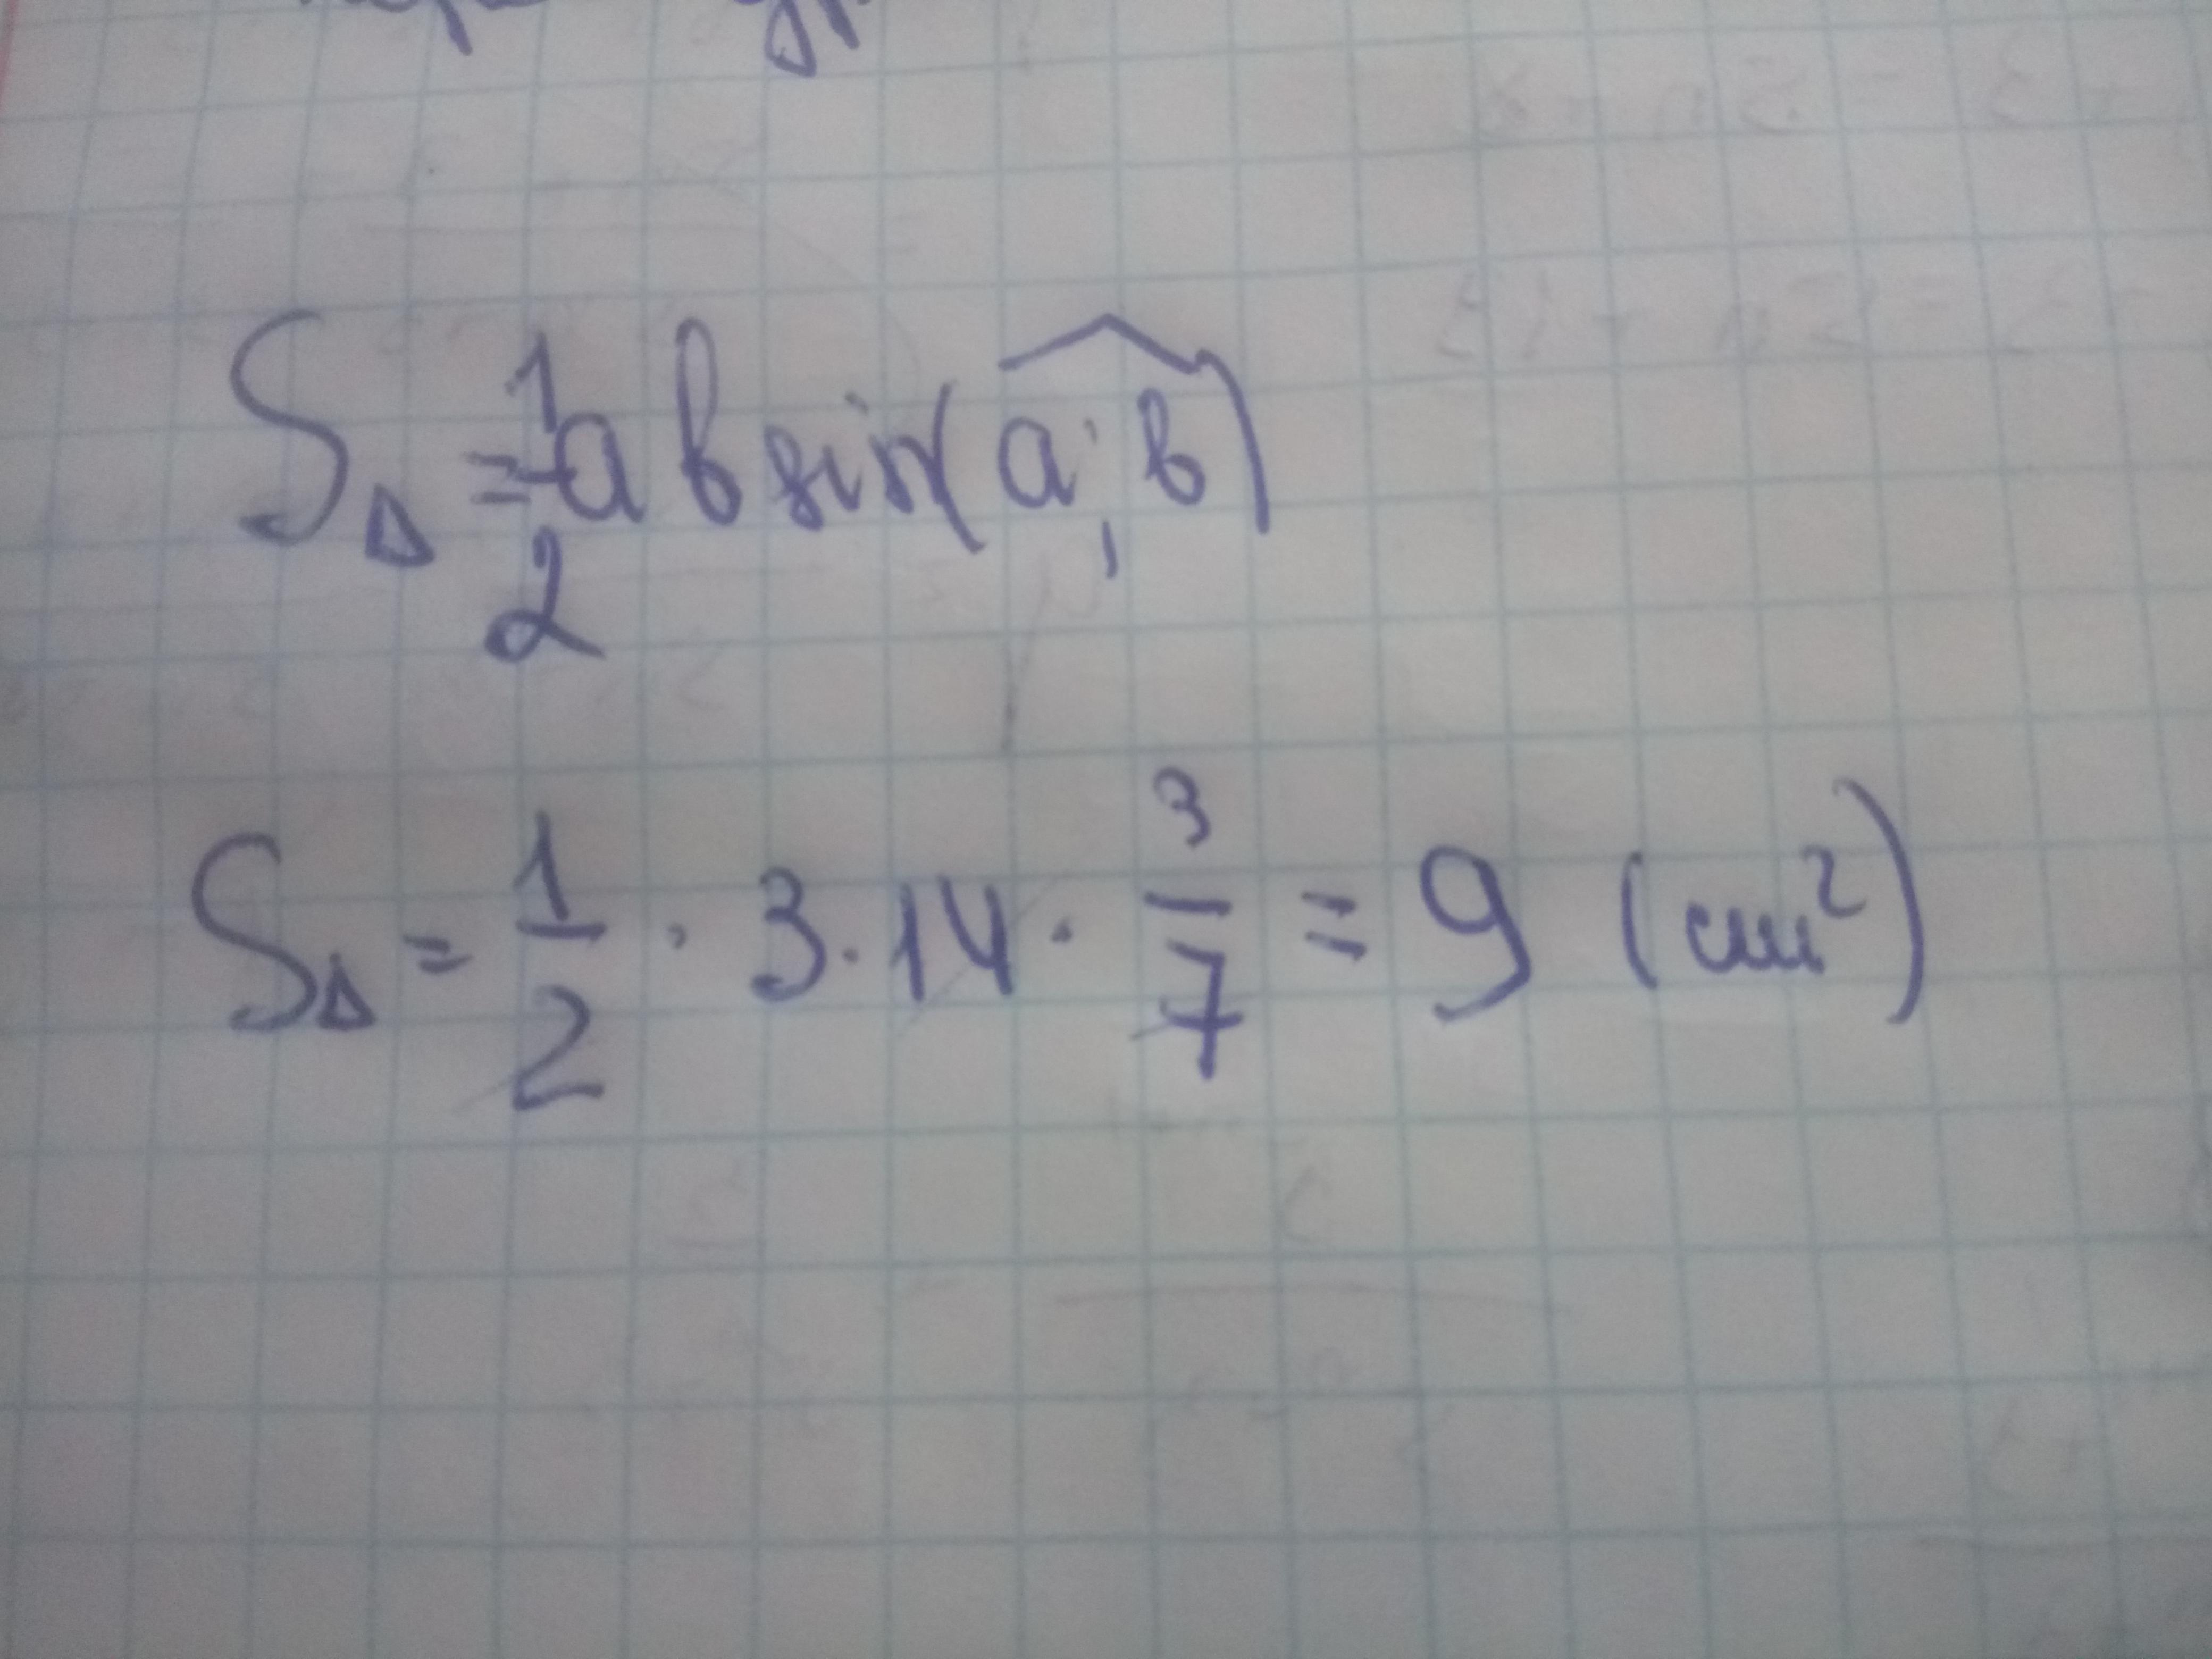 S△ = 1/2 a b sin(a^; b)
S△ = 1/2 · 3 · 14 · 3/7 = 9 (см²)